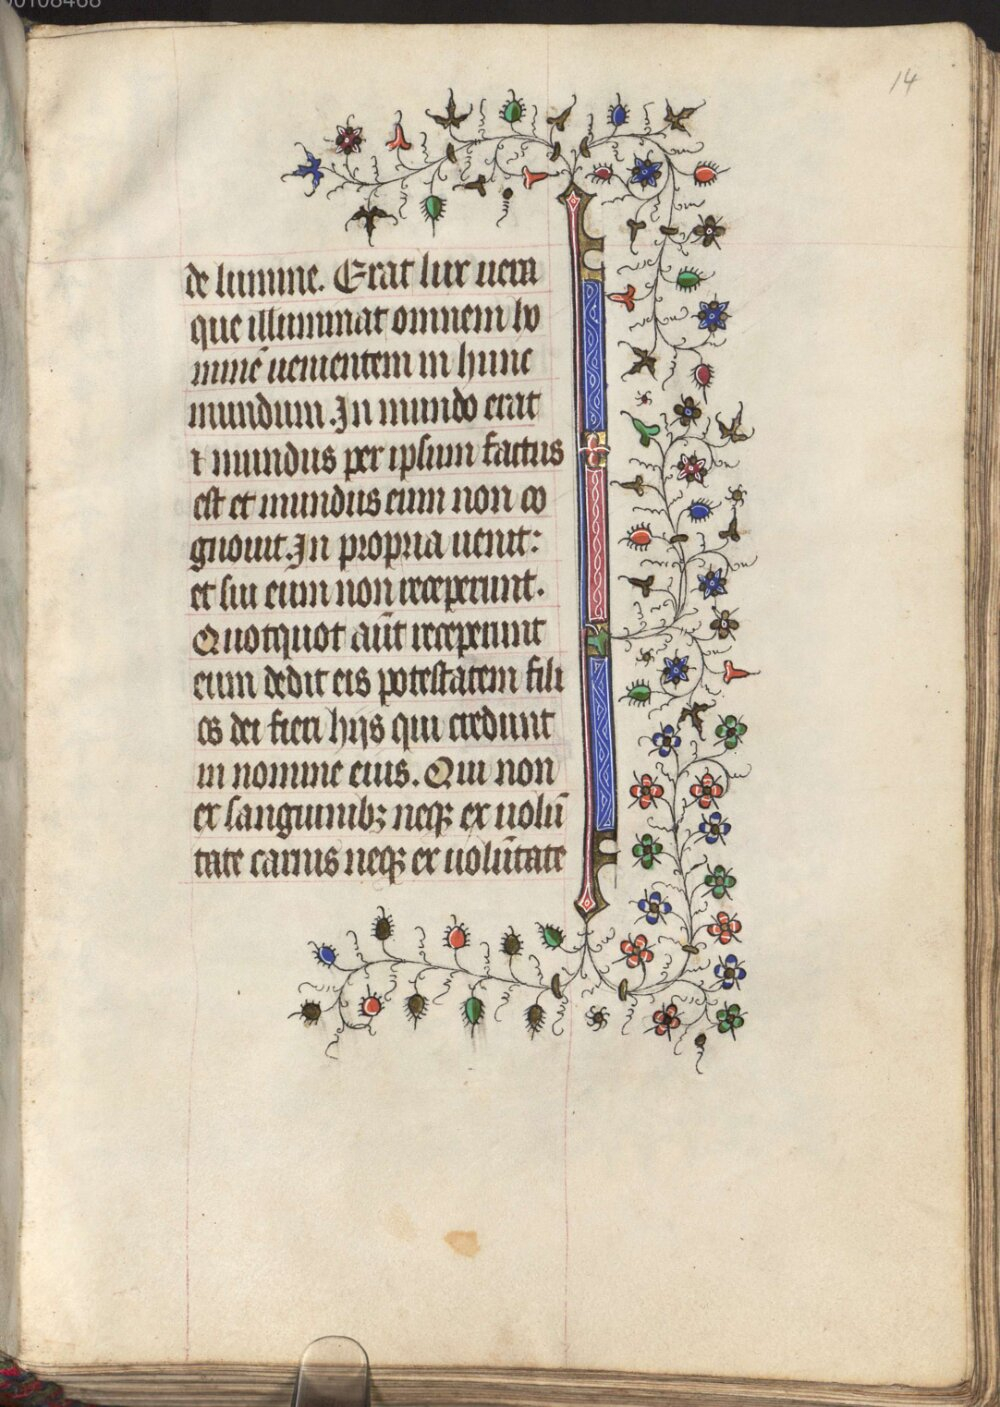 00108468
14
de lumine. Erat lux uera
que illuminat omnem ho
minē uenientem in hunc
mundum. In mundo erat
⁊ mundus per ipsum factus
est et mundus eum non co
gnouit. In propria uenit:
et sui eum non receperunt.
Quotquot aūt receperunt
eum dedit eis potestatem fili
os dei fieri hijs qui credunt
in nomine eius. Qui non
ex sanguinibꝫ neqꝫ ex uolū
tate carnis neqꝫ ex uolūtate